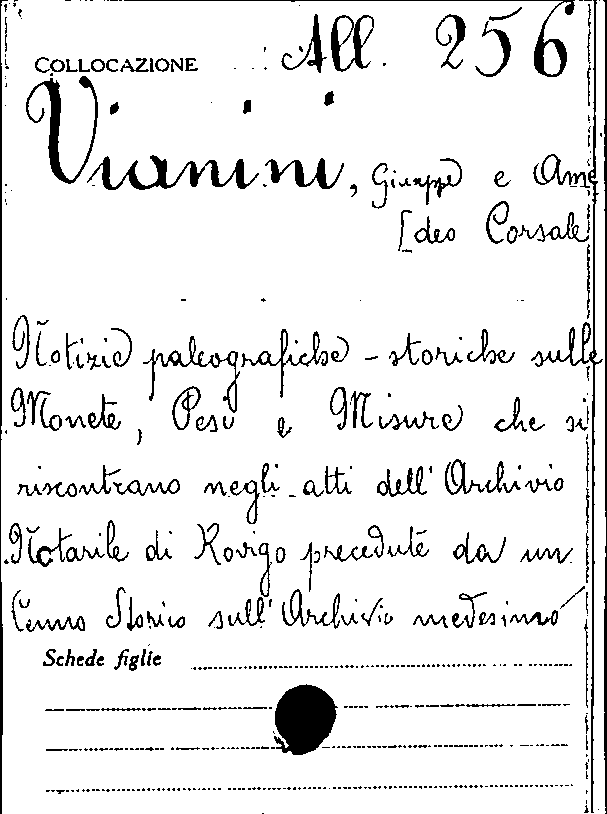 COLLOCAZIONE All. 256
Vianini, Giuseppe e Ame
[deo Corsale
Notizie paleografiche - storiche sulle
Monete, Pesi e Misure che si
riscontrano negli atti dell'Archivio
Notarile di Rovigo precedute da un
Cenno Storico sull'Archivio medesimo
Schede figlie